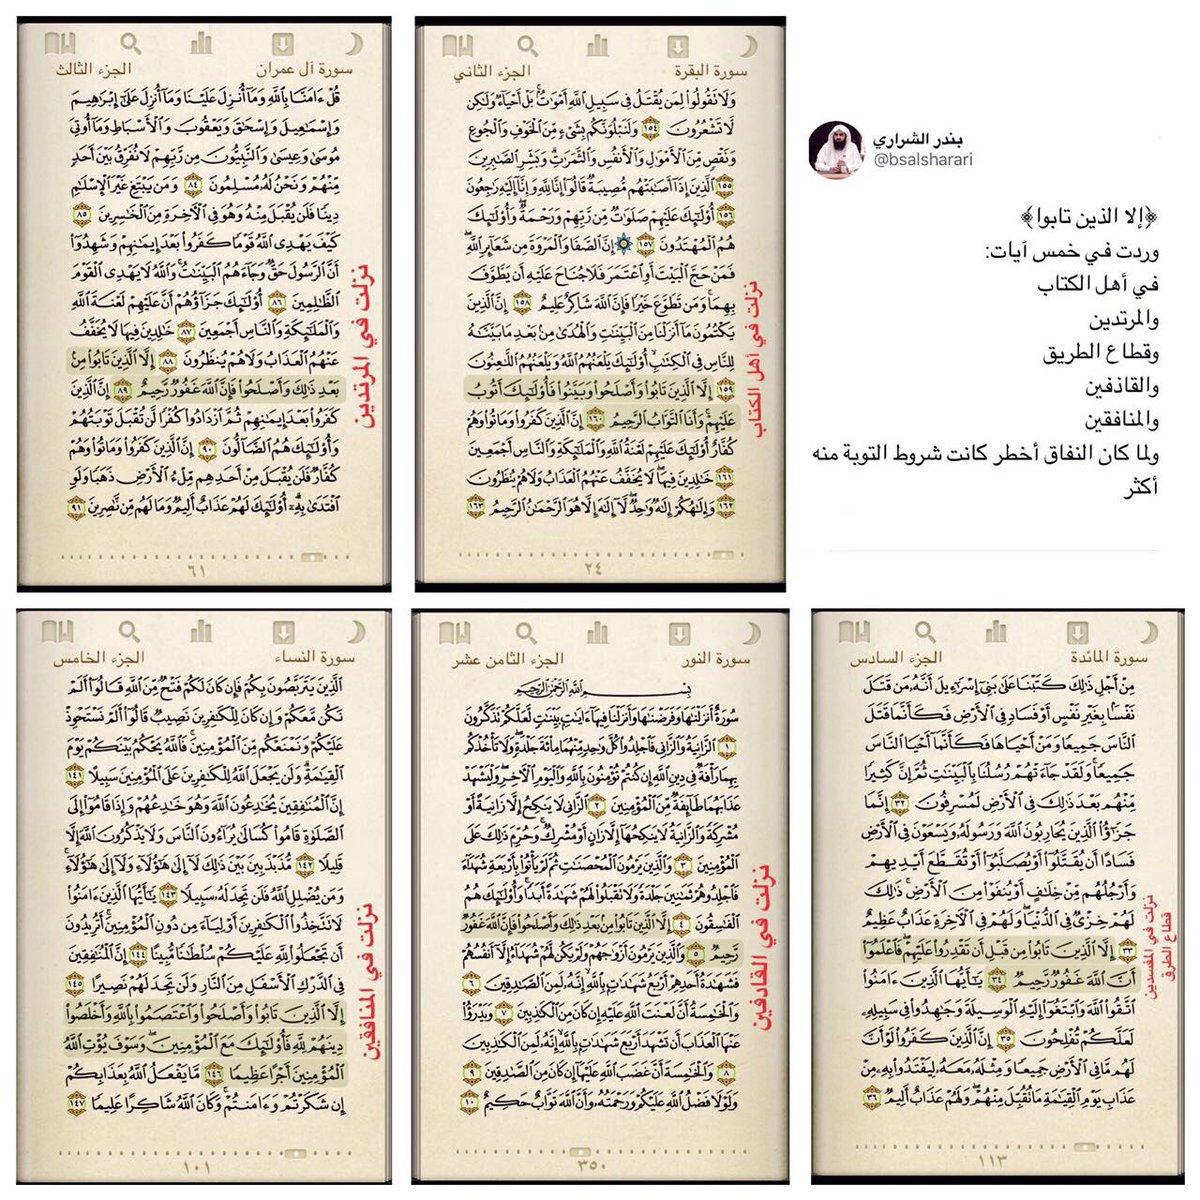 بندر الشراري
@bsalsharari
﴿إلا الذين تابوا﴾
وردت في خمس آيات:
في أهل الكتاب
والمرتدين
وقطاع الطريق
والقاذفين
والمنافقين
ولما كان النفاق أخطر كانت شروط التوبة منه
أكثر
سورة البقرة الجزء الثاني
وَلَا تَقُولُوا۟ لِمَن يُقْتَلُ فِى سَبِيلِ ٱللَّهِ أَمْوَٰتٌۢ بَلْ أَحْيَآءٌ وَلَٰكِن
لَّا تَشْعُرُونَ ١٥٤ وَلَنَبْلُوَنَّكُم بِشَىْءٍ مِّنَ ٱلْخَوْفِ وَٱلْجُوعِ
وَنَقْصٍ مِّنَ ٱلْأَمْوَٰلِ وَٱلْأَنفُسِ وَٱلثَّمَرَٰتِ وَبَشِّرِ ٱلصَّٰبِرِينَ
١٥٥ ٱلَّذِينَ إِذَآ أَصَٰبَتْهُم مُّصِيبَةٌ قَالُوٓا۟ إِنَّا لِلَّهِ وَإِنَّآ إِلَيْهِ رَٰجِعُونَ
١٥٦ أُو۟لَٰٓئِكَ عَلَيْهِمْ صَلَوَٰتٌ مِّن رَّبِّهِمْ وَرَحْمَةٌ وَأُو۟لَٰٓئِكَ
هُمُ ٱلْمُهْتَدُونَ ١٥٧ ۞ إِنَّ ٱلصَّفَا وَٱلْمَرْوَةَ مِن شَعَآئِرِ ٱللَّهِ
فَمَنْ حَجَّ ٱلْبَيْتَ أَوِ ٱعْتَمَرَ فَلَا جُنَاحَ عَلَيْهِ أَن يَطَّوَّفَ
بِهِمَا وَمَن تَطَوَّعَ خَيْرًا فَإِنَّ ٱللَّهَ شَاكِرٌ عَلِيمٌ ١٥٨ إِنَّ ٱلَّذِينَ
يَكْتُمُونَ مَآ أَنزَلْنَا مِنَ ٱلْبَيِّنَٰتِ وَٱلْهُدَىٰ مِنۢ بَعْدِ مَا بَيَّنَّٰهُ
لِلنَّاسِ فِى ٱلْكِتَٰبِ أُو۟لَٰٓئِكَ يَلْعَنُهُمُ ٱللَّهُ وَيَلْعَنُهُمُ ٱللَّٰعِنُونَ
١٥٩ إِلَّا ٱلَّذِينَ تَابُوا۟ وَأَصْلَحُوا۟ وَبَيَّنُوا۟ فَأُو۟لَٰٓئِكَ أَتُوبُ
عَلَيْهِمْ وَأَنَا ٱلتَّوَّابُ ٱلرَّحِيمُ ١٦٠ إِنَّ ٱلَّذِينَ كَفَرُوا۟ وَمَاتُوا۟ وَهُمْ
كُفَّارٌ أُو۟لَٰٓئِكَ عَلَيْهِمْ لَعْنَةُ ٱللَّهِ وَٱلْمَلَٰٓئِكَةِ وَٱلنَّاسِ أَجْمَعِينَ
١٦١ خَٰلِدِينَ فِيهَا لَا يُخَفَّفُ عَنْهُمُ ٱلْعَذَابُ وَلَا هُمْ يُنظَرُونَ
١٦٢ وَإِلَٰهُكُمْ إِلَٰهٌ وَٰحِدٌ لَّآ إِلَٰهَ إِلَّا هُوَ ٱلرَّحْمَٰنُ ٱلرَّحِيمُ ١٦٣
٢٤
نزلت في أهل الكتاب
سورة آل عمران الجزء الثالث
قُلْ ءَامَنَّا بِٱللَّهِ وَمَآ أُنزِلَ عَلَيْنَا وَمَآ أُنزِلَ عَلَىٰٓ إِبْرَٰهِيمَ
وَإِسْمَٰعِيلَ وَإِسْحَٰقَ وَيَعْقُوبَ وَٱلْأَسْبَاطِ وَمَآ أُوتِىَ
مُوسَىٰ وَعِيسَىٰ وَٱلنَّبِيُّونَ مِن رَّبِّهِمْ لَا نُفَرِّقُ بَيْنَ أَحَدٍ
مِّنْهُمْ وَنَحْنُ لَهُۥ مُسْلِمُونَ ٨٤ وَمَن يَبْتَغِ غَيْرَ ٱلْإِسْلَٰمِ
دِينًا فَلَن يُقْبَلَ مِنْهُ وَهُوَ فِى ٱلْءَاخِرَةِ مِنَ ٱلْخَٰسِرِينَ ٨٥
كَيْفَ يَهْدِى ٱللَّهُ قَوْمًا كَفَرُوا۟ بَعْدَ إِيمَٰنِهِمْ وَشَهِدُوٓا۟
أَنَّ ٱلرَّسُولَ حَقٌّ وَجَآءَهُمُ ٱلْبَيِّنَٰتُ وَٱللَّهُ لَا يَهْدِى ٱلْقَوْمَ
ٱلظَّٰلِمِينَ ٨٦ أُو۟لَٰٓئِكَ جَزَآؤُهُمْ أَنَّ عَلَيْهِمْ لَعْنَةَ ٱللَّهِ
وَٱلْمَلَٰٓئِكَةِ وَٱلنَّاسِ أَجْمَعِينَ ٨٧ خَٰلِدِينَ فِيهَا لَا يُخَفَّفُ
عَنْهُمُ ٱلْعَذَابُ وَلَا هُمْ يُنظَرُونَ ٨٨ إِلَّا ٱلَّذِينَ تَابُوا۟ مِنۢ
بَعْدِ ذَٰلِكَ وَأَصْلَحُوا۟ فَإِنَّ ٱللَّهَ غَفُورٌ رَّحِيمٌ ٨٩ إِنَّ ٱلَّذِينَ
كَفَرُوا۟ بَعْدَ إِيمَٰنِهِمْ ثُمَّ ٱزْدَادُوا۟ كُفْرًا لَّن تُقْبَلَ تَوْبَتُهُمْ
وَأُو۟لَٰٓئِكَ هُمُ ٱلضَّآلُّونَ ٩٠ إِنَّ ٱلَّذِينَ كَفَرُوا۟ وَمَاتُوا۟ وَهُمْ
كُفَّارٌ فَلَن يُقْبَلَ مِنْ أَحَدِهِم مِّلْءُ ٱلْأَرْضِ ذَهَبًا وَلَوِ
ٱفْتَدَىٰ بِهِۦٓ أُو۟لَٰٓئِكَ لَهُمْ عَذَابٌ أَلِيمٌ وَمَا لَهُم مِّن نَّٰصِرِينَ ٩١
٦١
نزلت في المرتدين
سورة المائدة الجزء السادس
مِنْ أَجْلِ ذَٰلِكَ كَتَبْنَا عَلَىٰ بَنِىٓ إِسْرَٰٓءِيلَ أَنَّهُۥ مَن قَتَلَ
نَفْسًۢا بِغَيْرِ نَفْسٍ أَوْ فَسَادٍ فِى ٱلْأَرْضِ فَكَأَنَّمَا قَتَلَ
ٱلنَّاسَ جَمِيعًا وَمَنْ أَحْيَاهَا فَكَأَنَّمَآ أَحْيَا ٱلنَّاسَ
جَمِيعًا وَلَقَدْ جَآءَتْهُمْ رُسُلُنَا بِٱلْبَيِّنَٰتِ ثُمَّ إِنَّ كَثِيرًا
مِّنْهُم بَعْدَ ذَٰلِكَ فِى ٱلْأَرْضِ لَمُسْرِفُونَ ٣٢ إِنَّمَا
جَزَٰٓؤُا۟ ٱلَّذِينَ يُحَارِبُونَ ٱللَّهَ وَرَسُولَهُۥ وَيَسْعَوْنَ فِى ٱلْأَرْضِ
فَسَادًا أَن يُقَتَّلُوٓا۟ أَوْ يُصَلَّبُوٓا۟ أَوْ تُقَطَّعَ أَيْدِيهِمْ
وَأَرْجُلُهُم مِّنْ خِلَٰفٍ أَوْ يُنفَوْا۟ مِنَ ٱلْأَرْضِ ذَٰلِكَ
لَهُمْ خِزْىٌ فِى ٱلدُّنْيَا وَلَهُمْ فِى ٱلْءَاخِرَةِ عَذَابٌ عَظِيمٌ
٣٣ إِلَّا ٱلَّذِينَ تَابُوا۟ مِن قَبْلِ أَن تَقْدِرُوا۟ عَلَيْهِمْ فَٱعْلَمُوٓا۟
أَنَّ ٱللَّهَ غَفُورٌ رَّحِيمٌ ٣٤ يَٰٓأَيُّهَا ٱلَّذِينَ ءَامَنُوا۟
ٱتَّقُوا۟ ٱللَّهَ وَٱبْتَغُوٓا۟ إِلَيْهِ ٱلْوَسِيلَةَ وَجَٰهِدُوا۟ فِى سَبِيلِهِۦ
لَعَلَّكُمْ تُفْلِحُونَ ٣٥ إِنَّ ٱلَّذِينَ كَفَرُوا۟ لَوْ أَنَّ
لَهُم مَّا فِى ٱلْأَرْضِ جَمِيعًا وَمِثْلَهُۥ مَعَهُۥ لِيَفْتَدُوا۟ بِهِۦ مِنْ
عَذَابِ يَوْمِ ٱلْقِيَٰمَةِ مَا تُقُبِّلَ مِنْهُمْ وَلَهُمْ عَذَابٌ أَلِيمٌ ٣٦
١١٣
نزلت في المفسدين
قطاع الطرق
سورة النور الجزء الثامن عشر
بِسْمِ ٱللَّهِ ٱلرَّحْمَٰنِ ٱلرَّحِيمِ
سُورَةٌ أَنزَلْنَٰهَا وَفَرَضْنَٰهَا وَأَنزَلْنَا فِيهَآ ءَايَٰتٍۭ بَيِّنَٰتٍ لَّعَلَّكُمْ تَذَكَّرُونَ
١ ٱلزَّانِيَةُ وَٱلزَّانِى فَٱجْلِدُوا۟ كُلَّ وَٰحِدٍ مِّنْهُمَا مِا۟ئَةَ جَلْدَةٍ وَلَا تَأْخُذْكُم
بِهِمَا رَأْفَةٌ فِى دِينِ ٱللَّهِ إِن كُنتُمْ تُؤْمِنُونَ بِٱللَّهِ وَٱلْيَوْمِ ٱلْءَاخِرِ وَلْيَشْهَدْ
عَذَابَهُمَا طَآئِفَةٌ مِّنَ ٱلْمُؤْمِنِينَ ٢ ٱلزَّانِى لَا يَنكِحُ إِلَّا زَانِيَةً أَوْ
مُشْرِكَةً وَٱلزَّانِيَةُ لَا يَنكِحُهَآ إِلَّا زَانٍ أَوْ مُشْرِكٌ وَحُرِّمَ ذَٰلِكَ عَلَى
ٱلْمُؤْمِنِينَ ٣ وَٱلَّذِينَ يَرْمُونَ ٱلْمُحْصَنَٰتِ ثُمَّ لَمْ يَأْتُوا۟ بِأَرْبَعَةِ شُهَدَآءَ
فَٱجْلِدُوهُمْ ثَمَٰنِينَ جَلْدَةً وَلَا تَقْبَلُوا۟ لَهُمْ شَهَٰدَةً أَبَدًا وَأُو۟لَٰٓئِكَ هُمُ
ٱلْفَٰسِقُونَ ٤ إِلَّا ٱلَّذِينَ تَابُوا۟ مِنۢ بَعْدِ ذَٰلِكَ وَأَصْلَحُوا۟ فَإِنَّ ٱللَّهَ غَفُورٌ
رَّحِيمٌ ٥ وَٱلَّذِينَ يَرْمُونَ أَزْوَٰجَهُمْ وَلَمْ يَكُن لَّهُمْ شُهَدَآءُ إِلَّآ أَنفُسُهُمْ
فَشَهَٰدَةُ أَحَدِهِمْ أَرْبَعُ شَهَٰدَٰتٍۭ بِٱللَّهِ إِنَّهُۥ لَمِنَ ٱلصَّٰدِقِينَ ٦
وَٱلْخَٰمِسَةُ أَنَّ لَعْنَتَ ٱللَّهِ عَلَيْهِ إِن كَانَ مِنَ ٱلْكَٰذِبِينَ ٧ وَيَدْرَؤُا۟
عَنْهَا ٱلْعَذَابَ أَن تَشْهَدَ أَرْبَعَ شَهَٰدَٰتٍۭ بِٱللَّهِ إِنَّهُۥ لَمِنَ ٱلْكَٰذِبِينَ
٨ وَٱلْخَٰمِسَةَ أَنَّ غَضَبَ ٱللَّهِ عَلَيْهَآ إِن كَانَ مِنَ ٱلصَّٰدِقِينَ ٩
وَلَوْلَا فَضْلُ ٱللَّهِ عَلَيْكُمْ وَرَحْمَتُهُۥ وَأَنَّ ٱللَّهَ تَوَّابٌ حَكِيمٌ ١٠
٣٥٠
نزلت في القاذفين
سورة النساء الجزء الخامس
ٱلَّذِينَ يَتَرَبَّصُونَ بِكُمْ فَإِن كَانَ لَكُمْ فَتْحٌ مِّنَ ٱللَّهِ قَالُوٓا۟ أَلَمْ
نَكُن مَّعَكُمْ وَإِن كَانَ لِلْكَٰفِرِينَ نَصِيبٌ قَالُوٓا۟ أَلَمْ نَسْتَحْوِذْ
عَلَيْكُمْ وَنَمْنَعْكُم مِّنَ ٱلْمُؤْمِنِينَ فَٱللَّهُ يَحْكُمُ بَيْنَكُمْ يَوْمَ
ٱلْقِيَٰمَةِ وَلَن يَجْعَلَ ٱللَّهُ لِلْكَٰفِرِينَ عَلَى ٱلْمُؤْمِنِينَ سَبِيلًا ١٤١
إِنَّ ٱلْمُنَٰفِقِينَ يُخَٰدِعُونَ ٱللَّهَ وَهُوَ خَٰدِعُهُمْ وَإِذَا قَامُوٓا۟ إِلَى
ٱلصَّلَوٰةِ قَامُوا۟ كُسَالَىٰ يُرَآءُونَ ٱلنَّاسَ وَلَا يَذْكُرُونَ ٱللَّهَ إِلَّا
قَلِيلًا ١٤٢ مُّذَبْذَبِينَ بَيْنَ ذَٰلِكَ لَآ إِلَىٰ هَٰٓؤُلَآءِ وَلَآ إِلَىٰ هَٰٓؤُلَآءِ
وَمَن يُضْلِلِ ٱللَّهُ فَلَن تَجِدَ لَهُۥ سَبِيلًا ١٤٣ يَٰٓأَيُّهَا ٱلَّذِينَ ءَامَنُوا۟
لَا تَتَّخِذُوا۟ ٱلْكَٰفِرِينَ أَوْلِيَآءَ مِن دُونِ ٱلْمُؤْمِنِينَ أَتُرِيدُونَ
أَن تَجْعَلُوا۟ لِلَّهِ عَلَيْكُمْ سُلْطَٰنًا مُّبِينًا ١٤٤ إِنَّ ٱلْمُنَٰفِقِينَ
فِى ٱلدَّرْكِ ٱلْأَسْفَلِ مِنَ ٱلنَّارِ وَلَن تَجِدَ لَهُمْ نَصِيرًا ١٤٥
إِلَّا ٱلَّذِينَ تَابُوا۟ وَأَصْلَحُوا۟ وَٱعْتَصَمُوا۟ بِٱللَّهِ وَأَخْلَصُوا۟
دِينَهُمْ لِلَّهِ فَأُو۟لَٰٓئِكَ مَعَ ٱلْمُؤْمِنِينَ وَسَوْفَ يُؤْتِ ٱللَّهُ
ٱلْمُؤْمِنِينَ أَجْرًا عَظِيمًا ١٤٦ مَّا يَفْعَلُ ٱللَّهُ بِعَذَابِكُمْ
إِن شَكَرْتُمْ وَءَامَنتُمْ وَكَانَ ٱللَّهُ شَاكِرًا عَلِيمًا ١٤٧
١٠١
نزلت في المنافقين